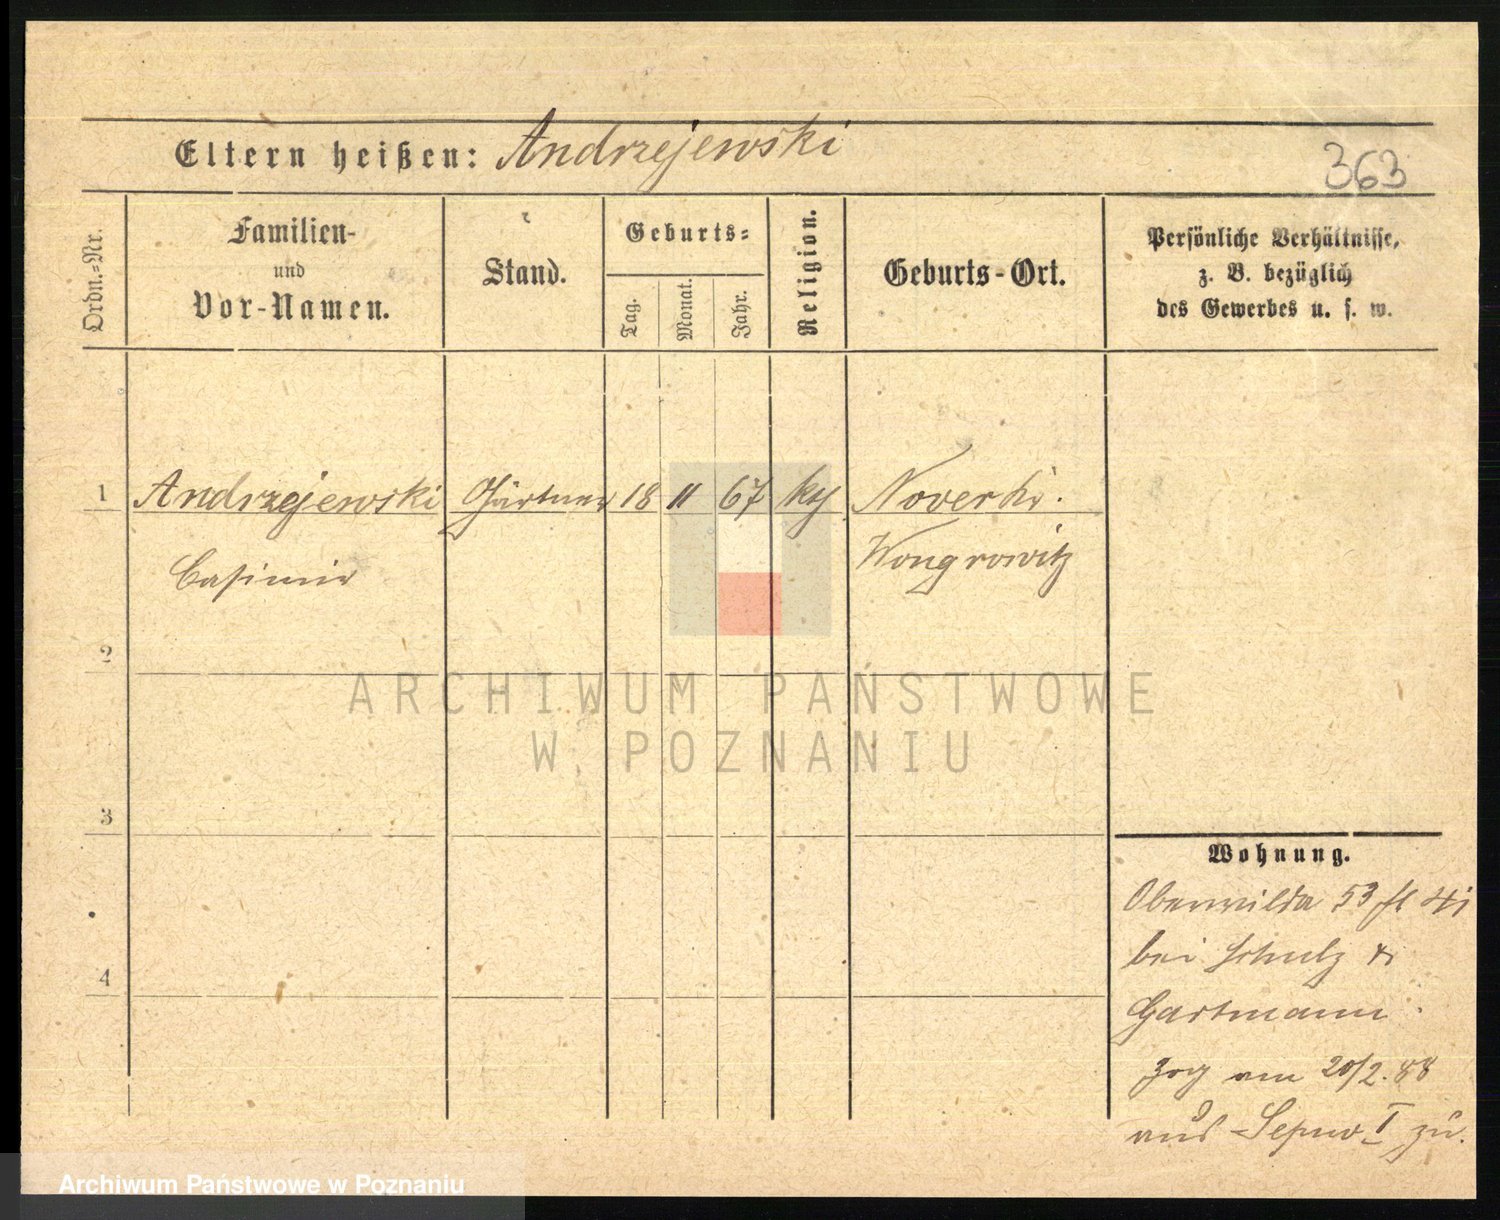 Eltern heißen: Andrzejewski
363
Ordn.=Nr.
Familien-
und
Vor-Namen.
Stand.
Geburts=
Tag.
Monat.
Jahr.
Religion.
Geburts-Ort.
Persönliche Verhältnisse,
z. B. bezüglich
des Gewerbes u. s. w.
1 Andrzejewski Gärtner 18 11 67 Noverki.
Casimir Wongrowitz
2
ARCHIWUM PAŃSTWOWE
W POZNANIU
3
4
Wohnung.
Oberwilda 53
bei Schulz &
Gartmann
zog am 20/2.88
aus I zu.
Archiwum Państwowe w Poznaniu